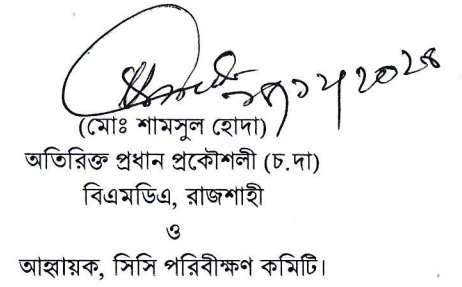 (মোঃ শামসুল হোদা)
অতিরিক্ত প্রধান প্রকৌশলী (চ.দা)
বিএমডিএ, রাজশাহী
ও
আহ্বায়ক, সিসি পরিবীক্ষণ কমিটি।